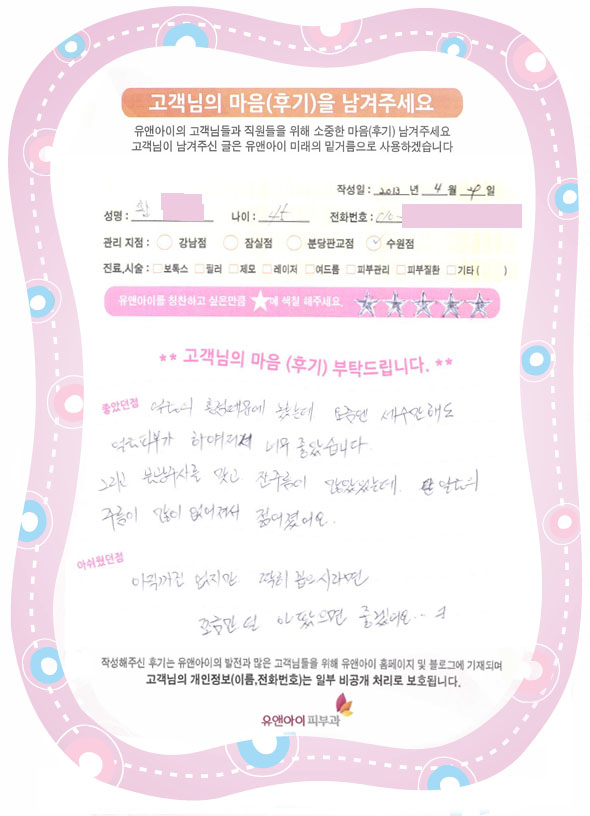 고객님의 마음(후기)을 남겨주세요
유앤아이의 고객님들과 직원들을 위해 소중한 마음(후기) 남겨주세요
고객님이 남겨주신 글은 유앤아이 미래의 밑거름으로 사용하겠습니다
작성일 : 2013 년 4 월 일
성명 : 나이 : 45 전화번호 : 010-
관리 지점 : 강남점 잠실점 분당판교점 수원점
진료,시술 : 보톡스 필러 제모 레이저 여드름 피부관리 피부질환 기타 ( )
유앤아이를 칭찬하고 싶은만큼 ★에 색칠 해주세요.
** 고객님의 마음 (후기) 부탁드립니다. **
좋았던점 얼굴의 때문에 왔는데 요즘엔 세수만해도
얼굴피부가 하얘져서 너무 좋았습니다.
그리고 물광주사를 맞고 잔주름이 많았었는데 얼굴의
주름이 많이 없어져서 젊어졌어요.
아쉬웠던점
아직까진 없지만 꼽으시라면
조금만 덜 아팠으면 좋겠어요~
작성해주신 후기는 유앤아이의 발전과 많은 고객님들을 위해 유앤아이 홈페이지 및 블로그에 기재되며
고객님의 개인정보(이름,전화번호)는 일부 비공개 처리로 보호됩니다.
유앤아이피부과